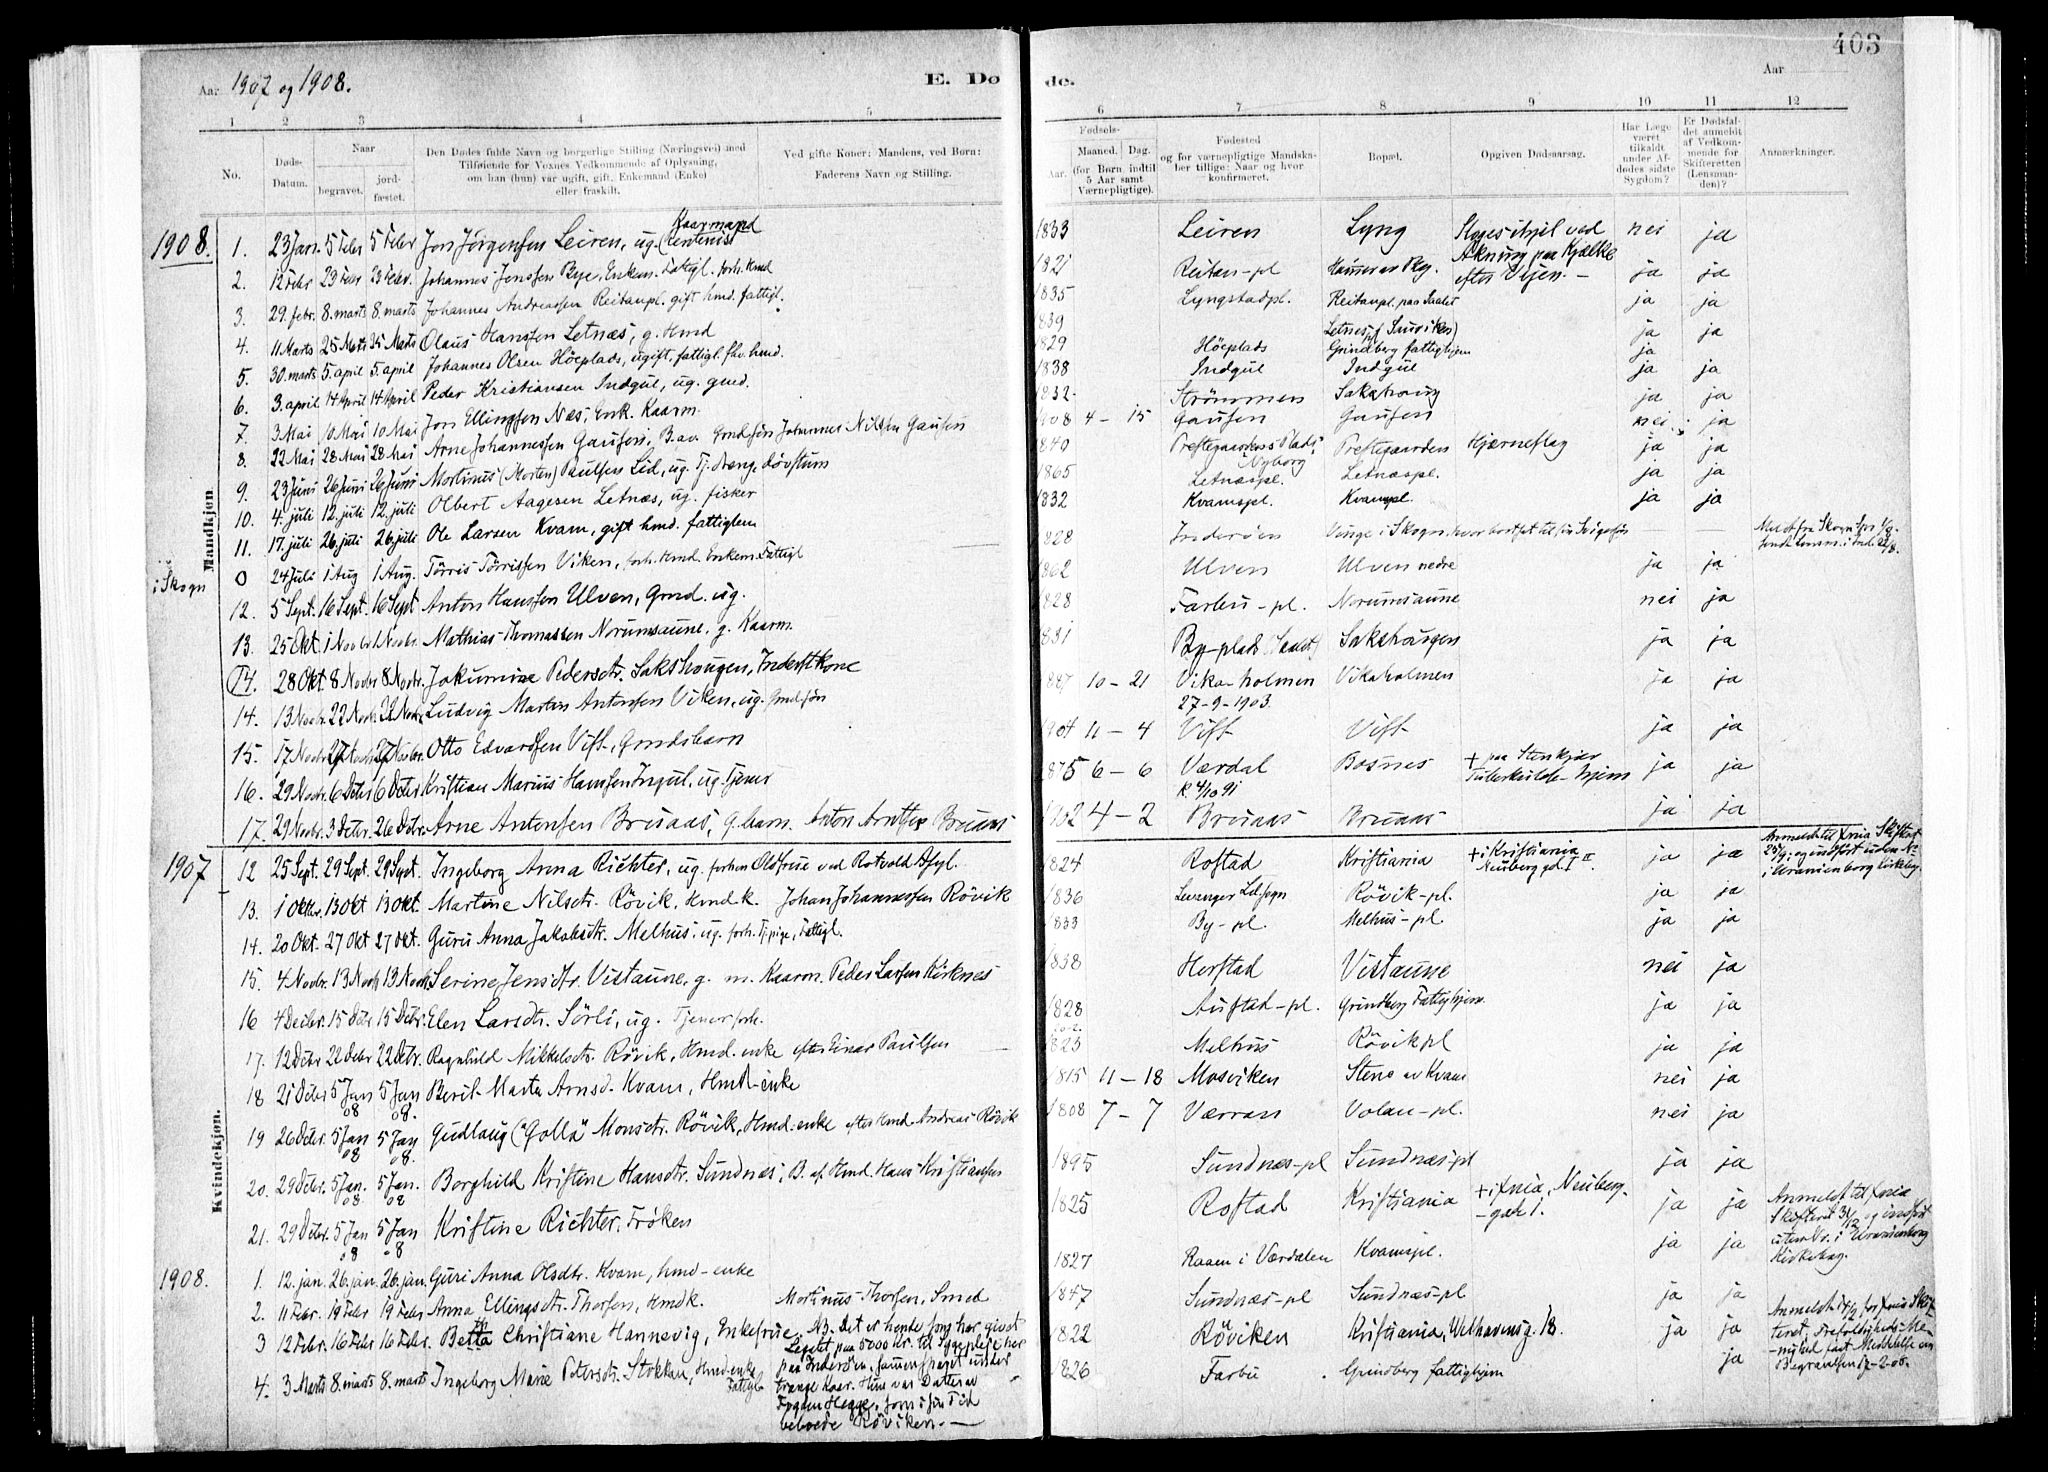 403
Aar 1907 og 1908. E. Dø de. Aar
1 2 3 4 5 6 7 8 9 10 11 12
No. Døds-Datum. Naar begravet. jord-fæstet. Den Dødes fulde Navn og borgerlige Stilling (Næringsvei) med Tilføiende for Voxnes Vedkommende af Oplysning, om han (hun) var ugift, gift, Enkemand (Enke) eller fraskilt. Ved gifte Koner: Mandens, ved Børn: Faderens Navn og Stilling. Fødsels- Aar. Maaned. Dag. (for Børn indtil 5 Aar samt Værnepligtige). Fødested og for værnepligtige Mandskaber tillige: Naar og hvor konfirmeret. Bopæl. Opgiven Dødsaarsag. Har Læge været tilkaldt under Afdødes sidste Sygdom? Er Dødsfaldet anmeldt af Vedkommende for Skifteretten (Lensmanden)? Anmærkninger.
Mandkjøn
1908. 1. 23 Jan. 5 Febr 5 Febr Jon Jörgensen Leiren, ug. Kaarmand 1833 Leiren Lyng Sloges ihjel ved Akning paa Kjælke efter Veien. nei ja
2. 12 Febr 23 Febr 23 Febr. Johannes Jenssen Bye, Enkem. Fattigl. forh. Hmd 1821 Reitan-pl ja ja
3. 29. febr. 8. marts 8. marts Johannes Andreassen Reitanpl. gift hmd. fattigl. 1835 Lyngstadpl. Reitanpl. paa Saalet ja ja
4. 11 Marts 25 Marts 25 Marts Olaus Hanssen Letnæs, g. Hmd 1839 Letnes ja ja
5. 30. marts 5. april 5. april Johannes Olsen Höeplads, ugift, fattigl. fhv. hmd. 1829 Höeplads Grindberg fattighjem ja
6. 3. april 14 April 14 April Peder Kristiansen Indgul, ug. gmd. 1838 Indgul Indgul ja ja
7. 3 Mai 10 Mai 10 Mai Jon Ellingsen Næs, Enk. Kaarm. 1832 Strömmen Sakshaug ja ja
8. 22 Mai 28 Mai 28 Mai Arne Johannessen Gausen, B. av Gmdsön Johannes Nilsen Gausen 1908 4 - 15 Gausen Gausen nei ja
9. 23 Juni 26 Juni 26 Juni Mortinus (Morten) Paulsen Lid, ug. Tj. dreng, døvstum 1840 Prestegaardens Plads, Nyborg Prestegaarden Hjærneslag ja ja
10. 4. juli 12. juli 12. juli Olbert Aagesen Letnæs, ug. fisker 1865 Letnæspl. Letnæspl. ja ja
11. 17. juli 26. juli 26. juli Ole Larsen Kvam, gift hmd. fattiglem 1832 Kvamspl. Kvamspl. ja ja
i Skogn 0 24 Juli 1 Aug 1 Aug. Törris Törrissen Viken, forh. Hmd Enkem. Fattigl 1828 Inderöen
12. 5 Sept. 16 Sept. 16 Sept Anton Hanssen Ulven, Gmd. ug. 1862 Ulven Ulven nedre ja ja
13. 25 Okt. 1 Novbr 1 Novbr. Mathias Thomassen Norumsaune, g. Kaarm. 1828 Farbu-pl. Norumsaune nei ja
14. 28 Okt. 8 Novbr 8 Novbr. Jakumine Pedersdtr. Sakshaugen, Inderstkone 1831 By-plads Sakshaugen ja ja
14. 13 Novbr. 22 Novbr. 22 Novbr. Ludvig Martin Antonsen Viken, ug. Gmdsön 1887 10 - 21 Vika-holmen 27-9-1903. Vikaholmen ja ja
15. 17 Novbr. 27 Novbr. 27 Novbr. Otto Edvardsen Vist, Gmdsbarn 1904 11 - 4 Vist Vist ja ja
16. 29 Novbr. 6 Debr 6 Debr Kristian Marius Hansen Ingul, ug. Tjener 1875 6 - 6 Værdal K. 4/10 91 Bosnes + paa Stenkjær Tuberkulosehjem ja ja
17. 29 Novbr. 3 Debr. 26 Debr. Arne Antonsen Bruaas, G. barn. Anton Arntsen Bruaas 1902 4 - 2 Bruaas Bruaas ja ja
Kvindekjøn.
1907 12 25 Sept. 29 Sept. 29 Sept. Ingeborg Anna Richter, ug. forhen Oldfrue ved Rotvold Asyl. 1824 Rostad Kristiania + i Kristiania Neuberg gd. 1 II. ja ja
13. 1 Oktbr. 13 Okt 13 Okt. Martine Nilsdtr. Rövik, Hmd k. Johan Johannessen Rövik 1836 Levanger Ldsogn Rövik-pl. ja ja
14. 20 Okt. 27 Okt 27 Okt. Guru Anna Jakobsdtr. Melhus, ug. forh. Tj. pige, Fattigl. 1833 By-pl. Melhus-pl. ja ja
15. 4 Novbr. 13 Novb. 13 Novb. Serine Jensdtr. Vistaune, g. m. Kaarm. Peder Larsen Kirknes 1838 Horstad Vistaune nei ja
16 4 Decbr. 15 Debr 15 Debr. Elen Larsdtr. Sörli, ug. Tjener forh. 1828 Austad-pl. Grindberg Fattighjem ja ja
17. 12 Debr 22 Debr 22 Debr. Ragnhild Mikkelsdtr. Rövik, Hmd. enke efter Einar Paulsen 1823 Melhus Rövikpl ja ja
18 21 Debr 5 Jan 08 5 Jan 08. Berit Marta Arnsd. Kvam, Hmd-enke 1815 11 - 18 Mosviken Stene av Kvam nei ja
19 26 Debr. 5 Jan 08 5 Jan 08. Gudlaug ("Golla") Monsdtr. Rövik, Hmd. enke efter Hmd. Andreas Rövik 1808 7 - 7 Værran Volan-pl. nei ja
20. 29 Debr. 5 Jan. 08 5 Jan. 08 Borghild Kristine Hansdtr. Sundnæs, B. af Hmd. Hans Kristiansen 1895 Sundnæs-pl Sundnæs-pl ja ja
21. 29 Debr. 5 Jan 08 5 Jan 08 Kristine Richter, Frøken 1825 Rostad Kristiania + i Xnia, Neuberg-gade 1. ja ja Anmeldt til Xnia Skifteret 31/12 og indført uten Nr. i Uranienborg Kirkebog.
1908. 1. 12. jan. 26. jan. 26. jan. Guri Anna Olsdtr. Kvam, hmd-enke 1827 Raam i Værdalen Kvamspl. ja ja
2. 11 Febr. 19 Febr 19 Febr Anna Ellingsdtr. Thorsen, Hmdk. Martinus Thorsen, Smed 1847 Sundnæs-pl Sundnæs-pl ja ja
3 12 Febr. 16 Febr 16 Febr. Betta Christiane Hannevig, Enkefrue. NB. Det er hende som har givet Legatet paa 5000 kr. til Sygepleie her paa Inderøen, sammenspaget under trange Kaar. Hun var Datter av Fogden Hegge, som i sin Tid beboede Röviken. 1822 Röviken Kristiania, Welhavensg. 18. ja ja
4. 3 Marts 8. marts 8. marts Ingeborg Marie Petersdtr. Stokkan, Hmd-enke Fattigl 1826 Farbu Grindberg fattighjem ja